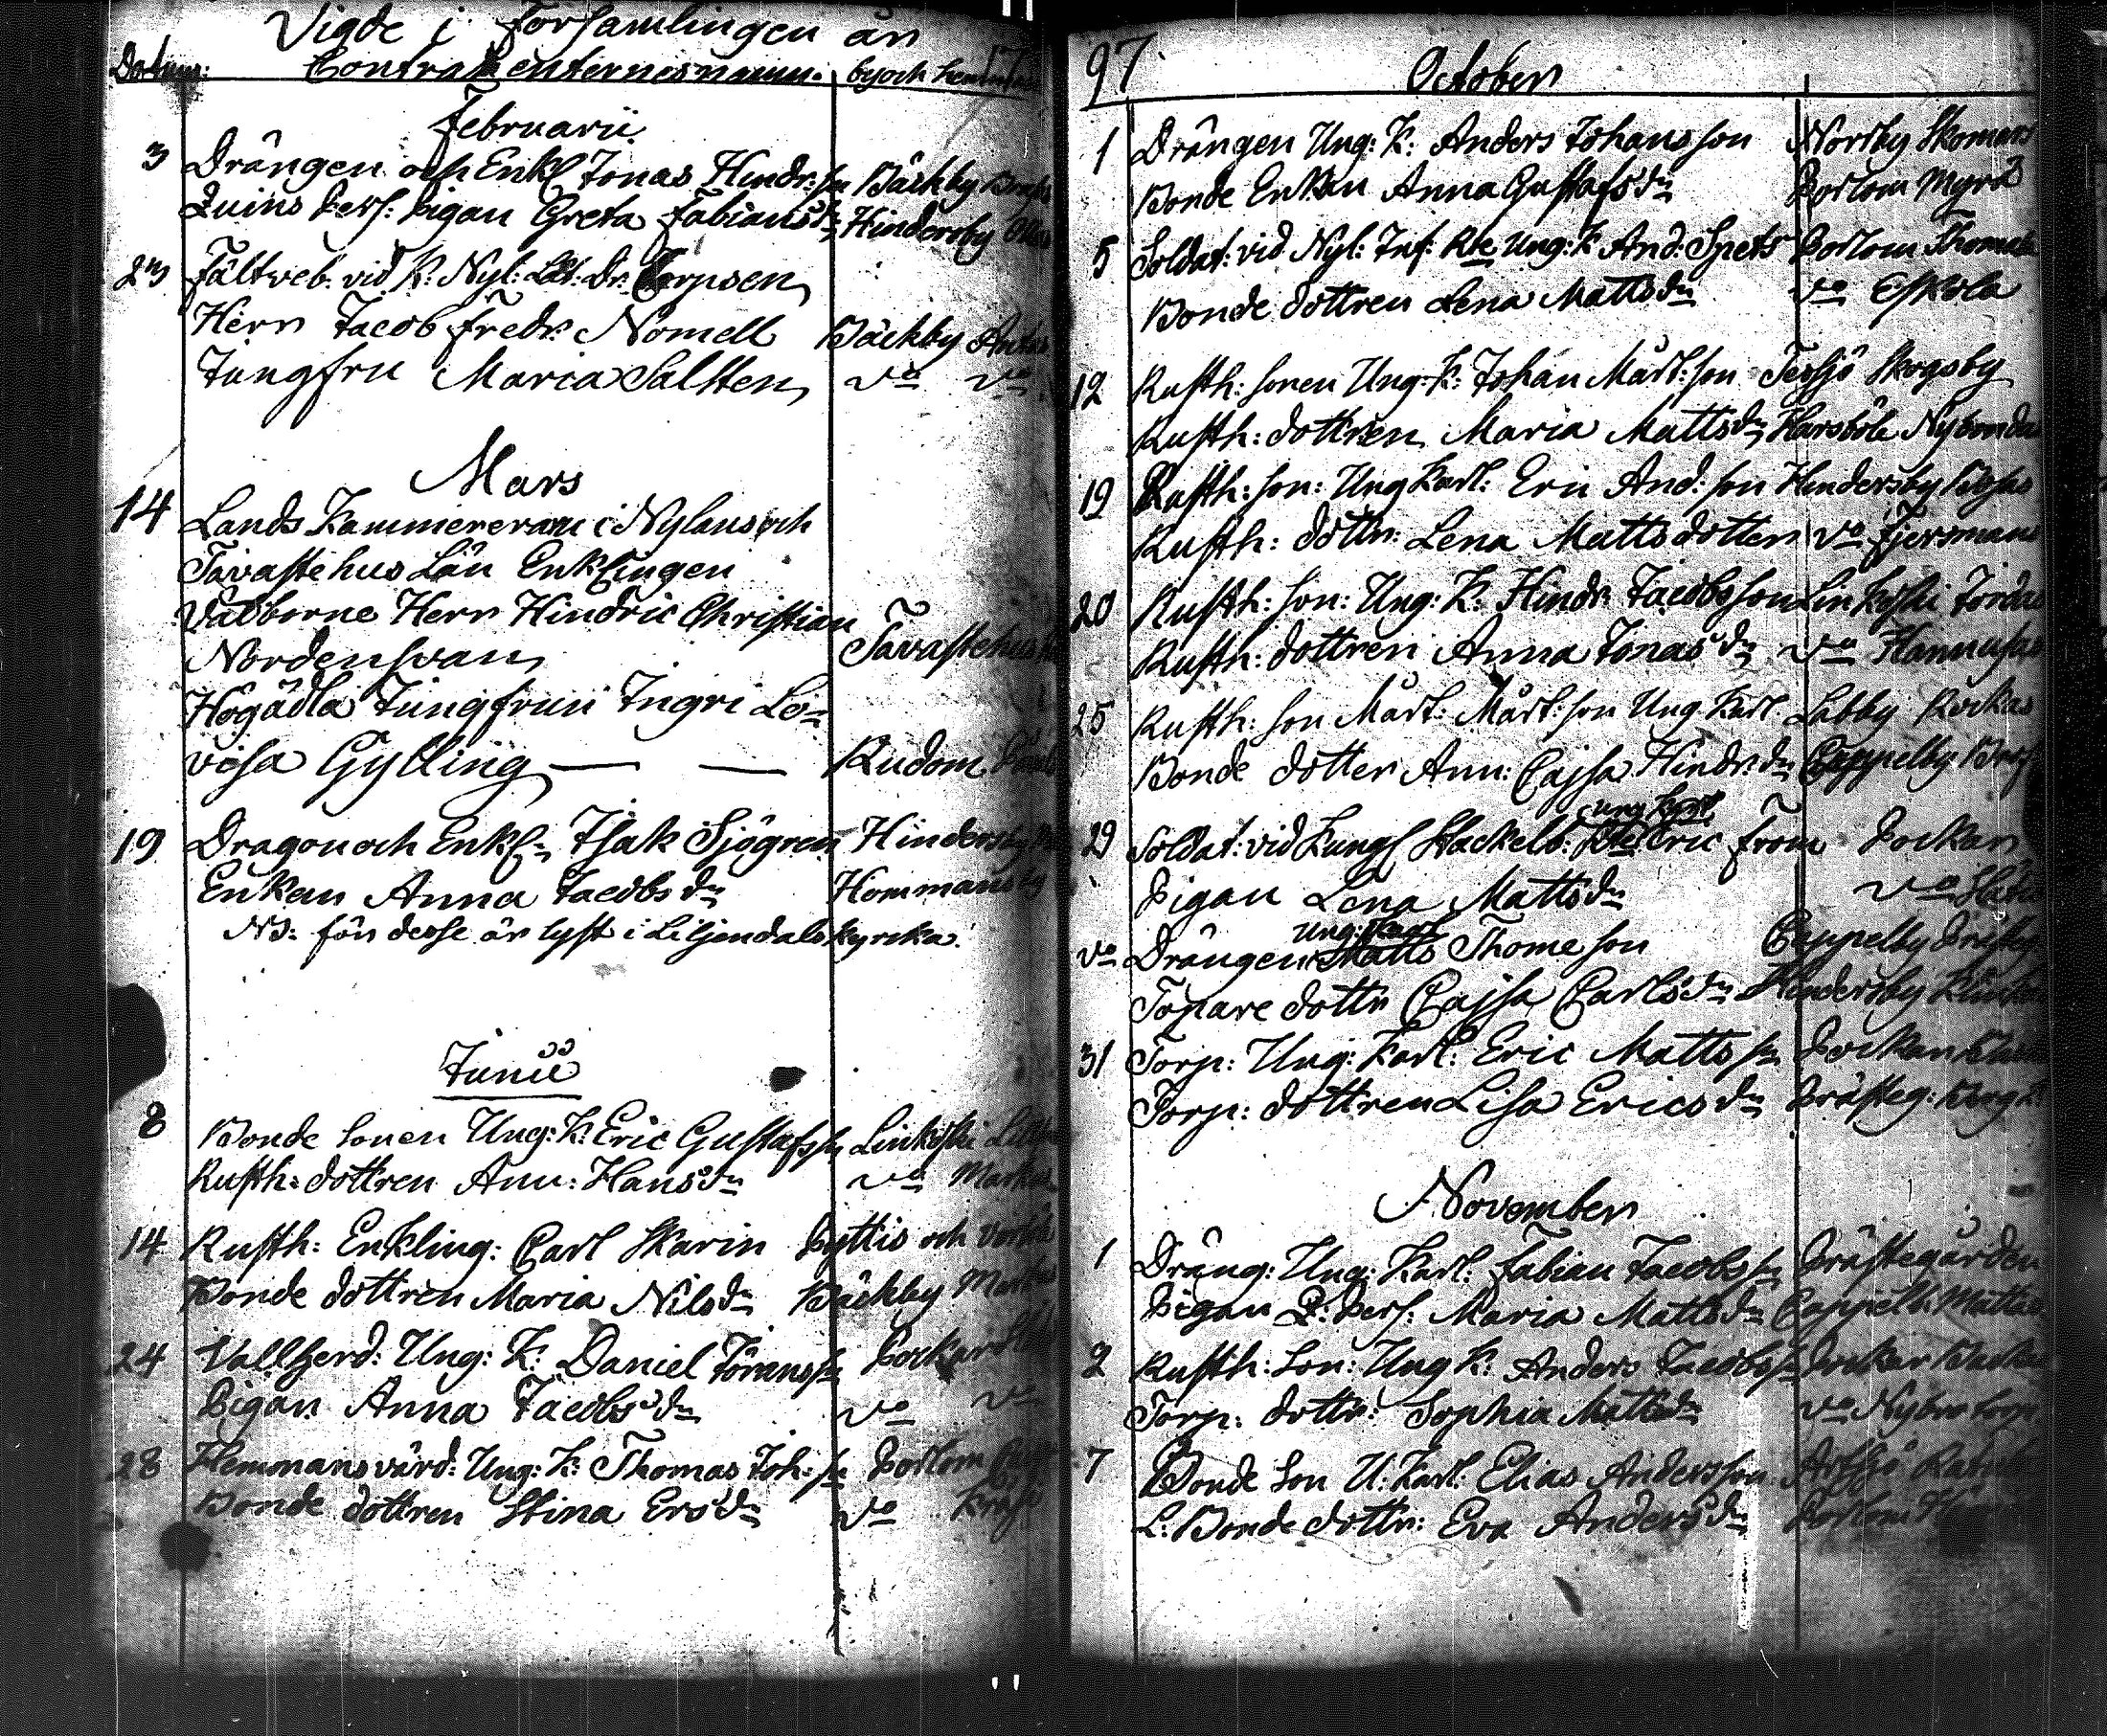 Vigde i Församlingen år
Datum: Contrahenternes namn. by och
Februarii
3 Drängen och Enkl Jonas Hindr:sn Bäckby
Quins Pers: Pigan Greta Fabiansdr Hindersby
23 Fältveb. vid K: Nyl: Lät: Dr: Corpsen
Herr Jacob Fredr: Nomell Bäckby Antas
Jungfru Maria Salsten do do
Mars
14 Lands Kammereraren i Nylans och
Tavastehus Län Enklingen
Välborne Herr Hindric Christian
Nordensvan Tavastehus
Högädla Jungfrun Ingri Lo=
visa Gylling — — Kudom
19 Dragon och Enkl: Isak Sjögren Hindersby
Enkan Anna Jacobsdr Hommansby
NB: för desse är lyst i Liljendals kyrka.
Junii
8 Bonde Sonen Ung: K: Eric Gustafssn Linkoski
Rusth: dottren Ann: Hansdr do
14 Rusth: Enkling: Carl Skarin Pyttis och
Bonde dottren Maria Nilsdr Bäckby
24 Vallherd: Ung: K: Daniel Göranssn Pockar
Pigan Anna Jacobsdr do do
28 Hemmansvärd: Ung: K: Thomas Joh:sn Porlom
Bonde dottren Stina Ersdr do
97 October
1 Drängen Ung: K: Anders Johansson Norrby Skomars
Bonde Enkan Anna Gustafsdr Porlom Myrä
5 Soldat: vid Nyl: Inf: Rte Ung: K And: Spets Porlom Thomas
Bonde dottren Lena Mattsdr do Eskola
12 Rusth: sonen Ung: K: Johan Mårt:son Tessjö Skogsby
Rusth: dottren Maria Mattsdr Harsböle Nybonda
19 Rusth: son: Ung Karl: Eric And:son Hindersby
Rusth: dottr: Lena Mattsdotter do Fjersmans
20 Rusth: son: Ung: K: Hindr: Jacobsson Linkoski
Rusth: dottren Anna Jonasdr do Hannusas
25 Rusth: son Mårt: Mårt:son Ung Karl Labby Rockas
Bonde dotter Ann: Cajsa Hindr:dr Cappelby
Ung Karl
29 Soldat: vid Kungl Stackelb: Rte Eric From Pockar
Pigan Lena Mattsdr do
Ung: Karl
do Drängen Matts Thomeson Cappelby
Torpare dottr Cajsa Carlsdr Hindersby
31 Torp: Ung: Karl: Eric Mattssn Pockar
Torp: dottren Lisa Ericsdr Prästeg:
November
1 Dräng: Ung: Karl: Fabian Jacobssn Prästegården
Pigan Q: Pers: Maria Mattsdr Cappelb: Mattas
2 Rusth: Son: Ung K: Anders Jacobssn Pockar
Torp: dottr: Sophia Mattsdr do Nybro torp
7 Bonde Son U: Karl: Elias Andersson Artsjö
L: Bonde dottr: Eva Andersdr Porlom